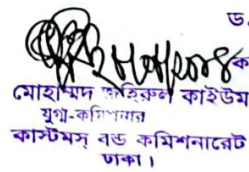 ড.
ক
মোহাম্মদ জহিরুল কাইউম
যুগ্ম-কমিশনার
কাস্টমস্ বন্ড কমিশনারেট
ঢাকা।